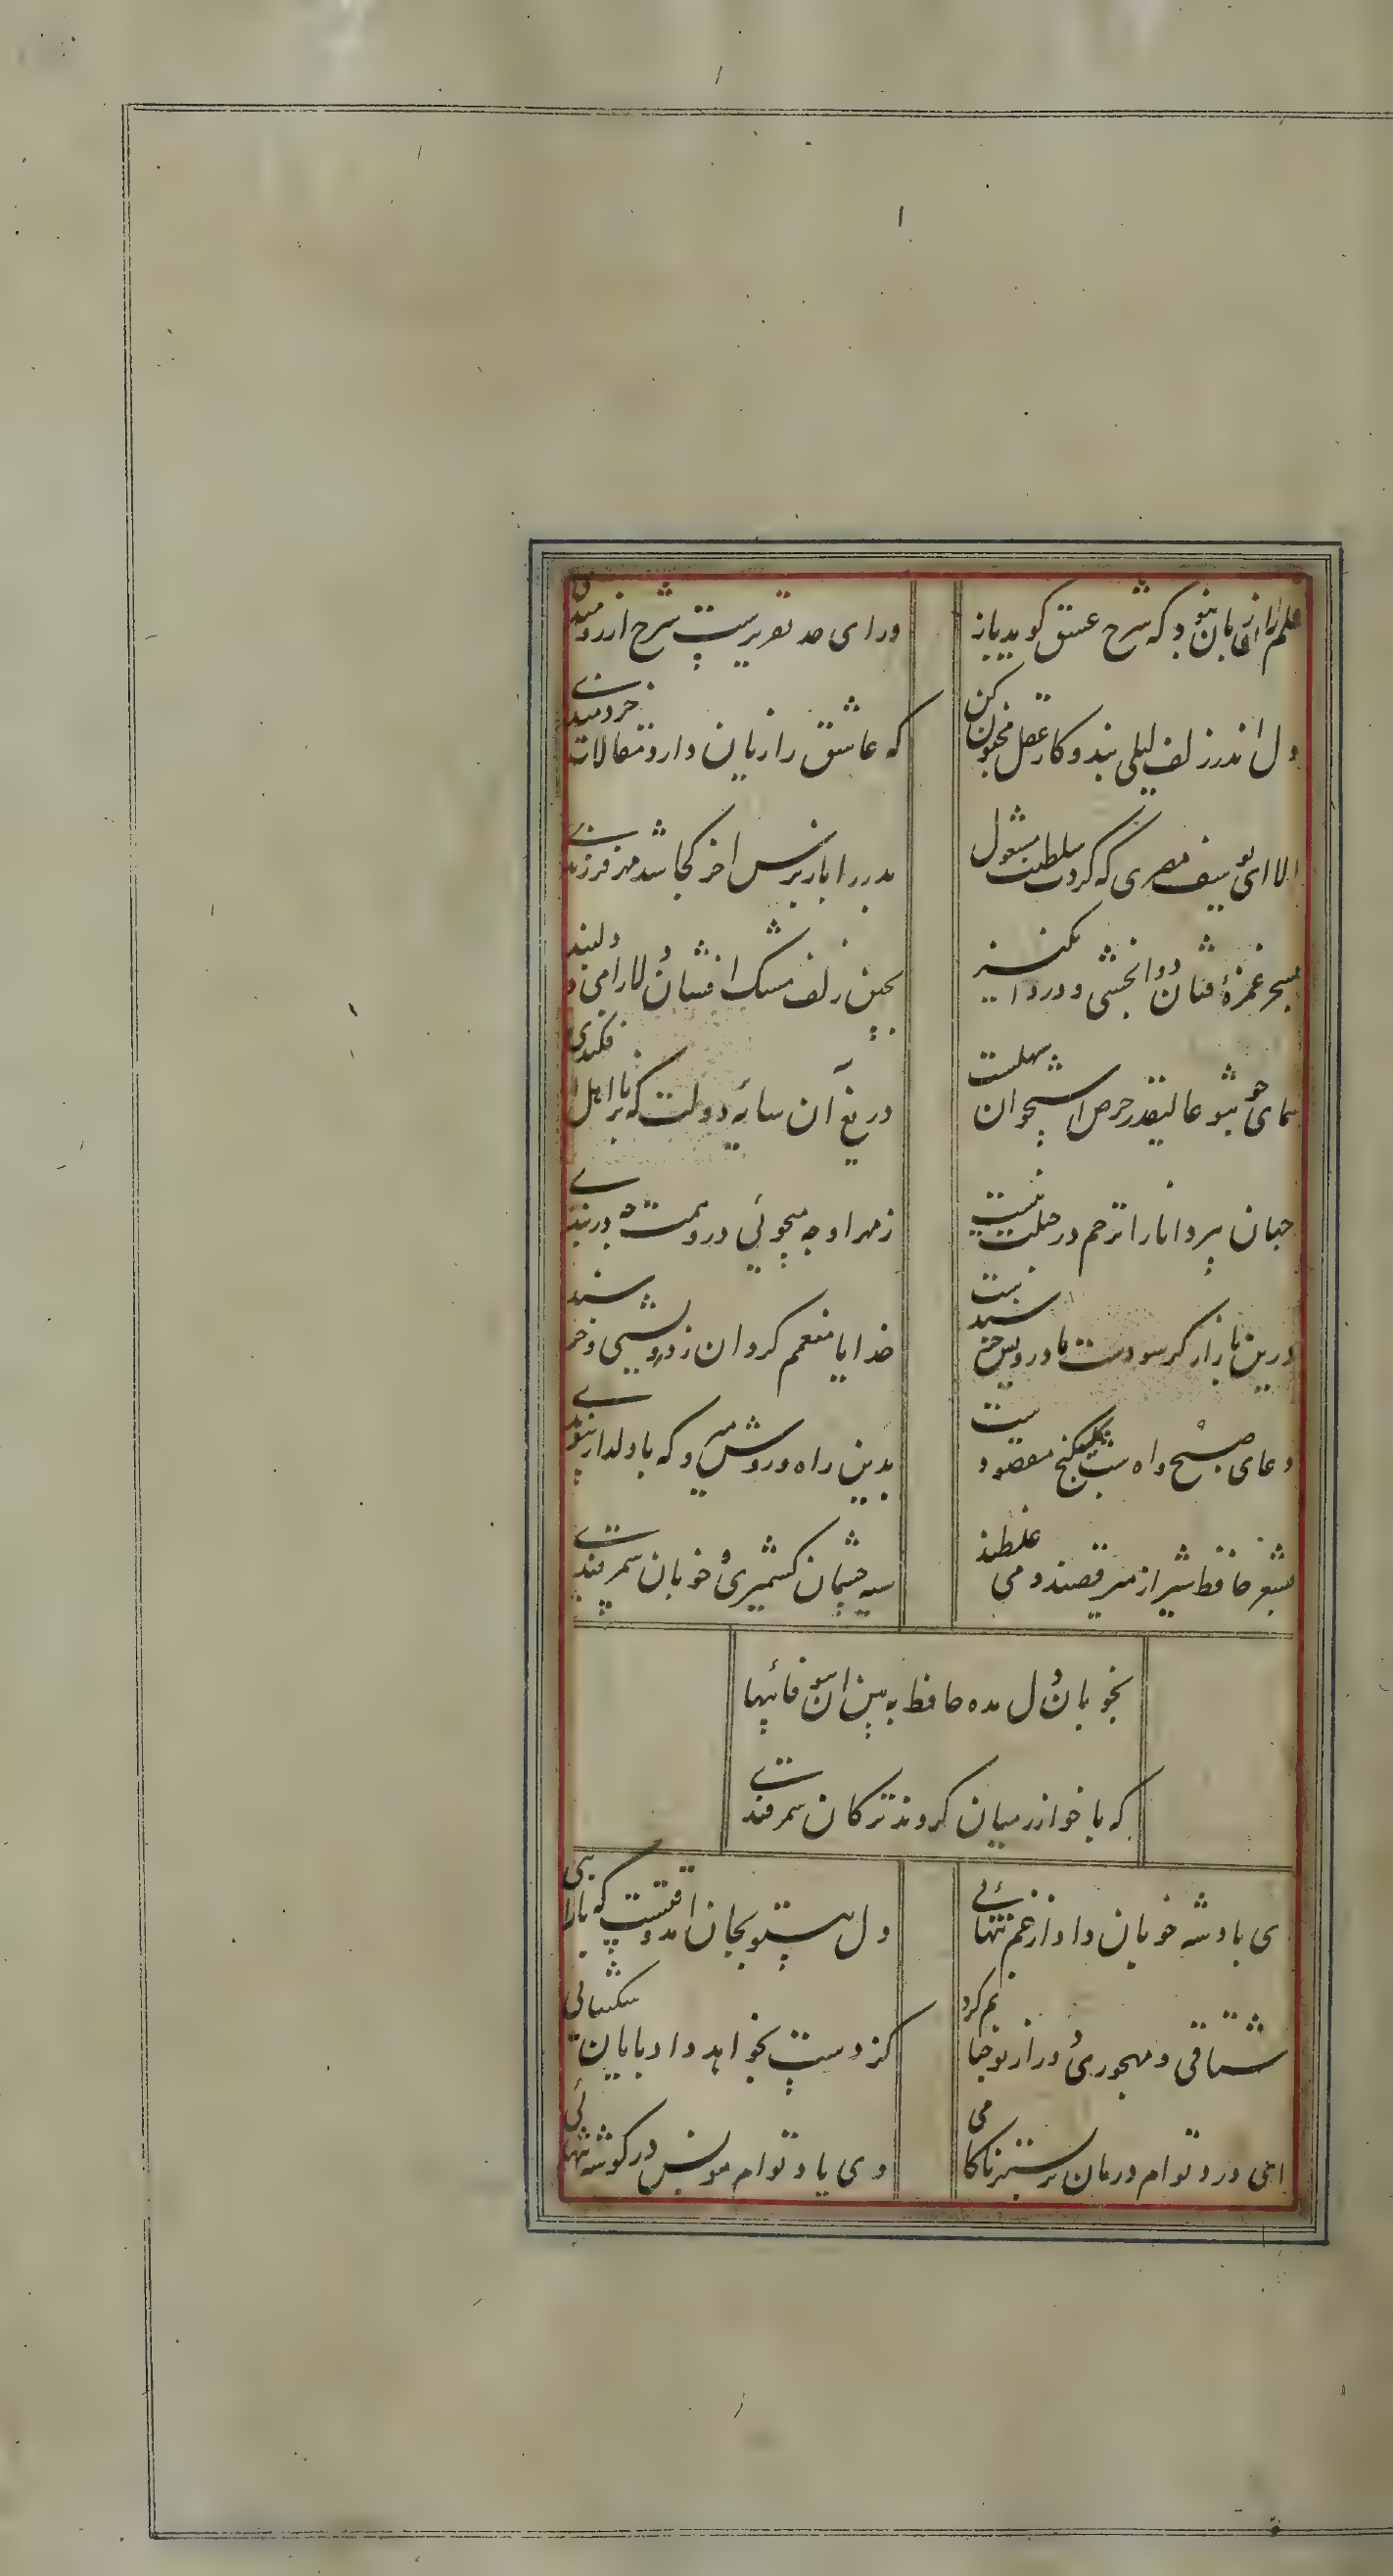 قلم را آن زبان نبود که شرح عشق گوید باز
ورای حد تقریرست شرح ارزومندی
دل اندر زلف لیلی بند و کار عقل مجنون کن
که عاشق را زیان دارد مقالات خردمندی
الا ای یوسف مصری که کردت سلطنت مشغول
پدر را باز پرس اخر کجا شد مهر فرزندی
بسحر غمزهٔ فتان دوا بخشی و درد انگیز
بچین زلف مشک افشان دلارامی و دلبندی
همای چو تو عالیقدر حرص استخوان سهلست
دریغ آن سایه دولت که بر نااهل افکندی
جهان پیر دانا را ترحم در جبلت نیست
ز مهر او چه میجوئی درو همت چه دربندی
درین بازار گر سودست با درویش خرسندست
خدایا منعمم گردان ز درویشی و خرسندی
دعای صبح و اه شب کلید گنج مقصودست
بدین راه و روش میرو که با دلدار پیوندی
بشعر حافظ شیراز میرقصند و می غلطند
سیه چشمان کشمیری و خوبان سمرقندی
بخوبان دل مده حافظ به بین ان بیوفائیها
که با خوارزمیان کردند ترکان سمرقندی
ای پادشه خوبان داد از غم تنهائی
دل بیتو بجان امد وقتست که بازایی
مشتاقی و مهجوری دور از تو چنانم کرد
کز دست بخواهد داد پایان شکیبائی
ای درد توام درمان بر بستر ناکامی
وی یاد توام مونس در گوشه تنهائی